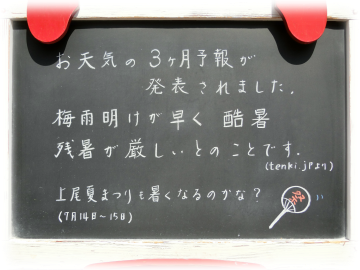 お天気の3ヶ月予報が
発表されました.
梅雨明けが早く 酷暑
残暑が厳しいとのことです.
(tenki.jpより)
上尾夏まつりも暑くなるのかな?
(7月14日~15日)